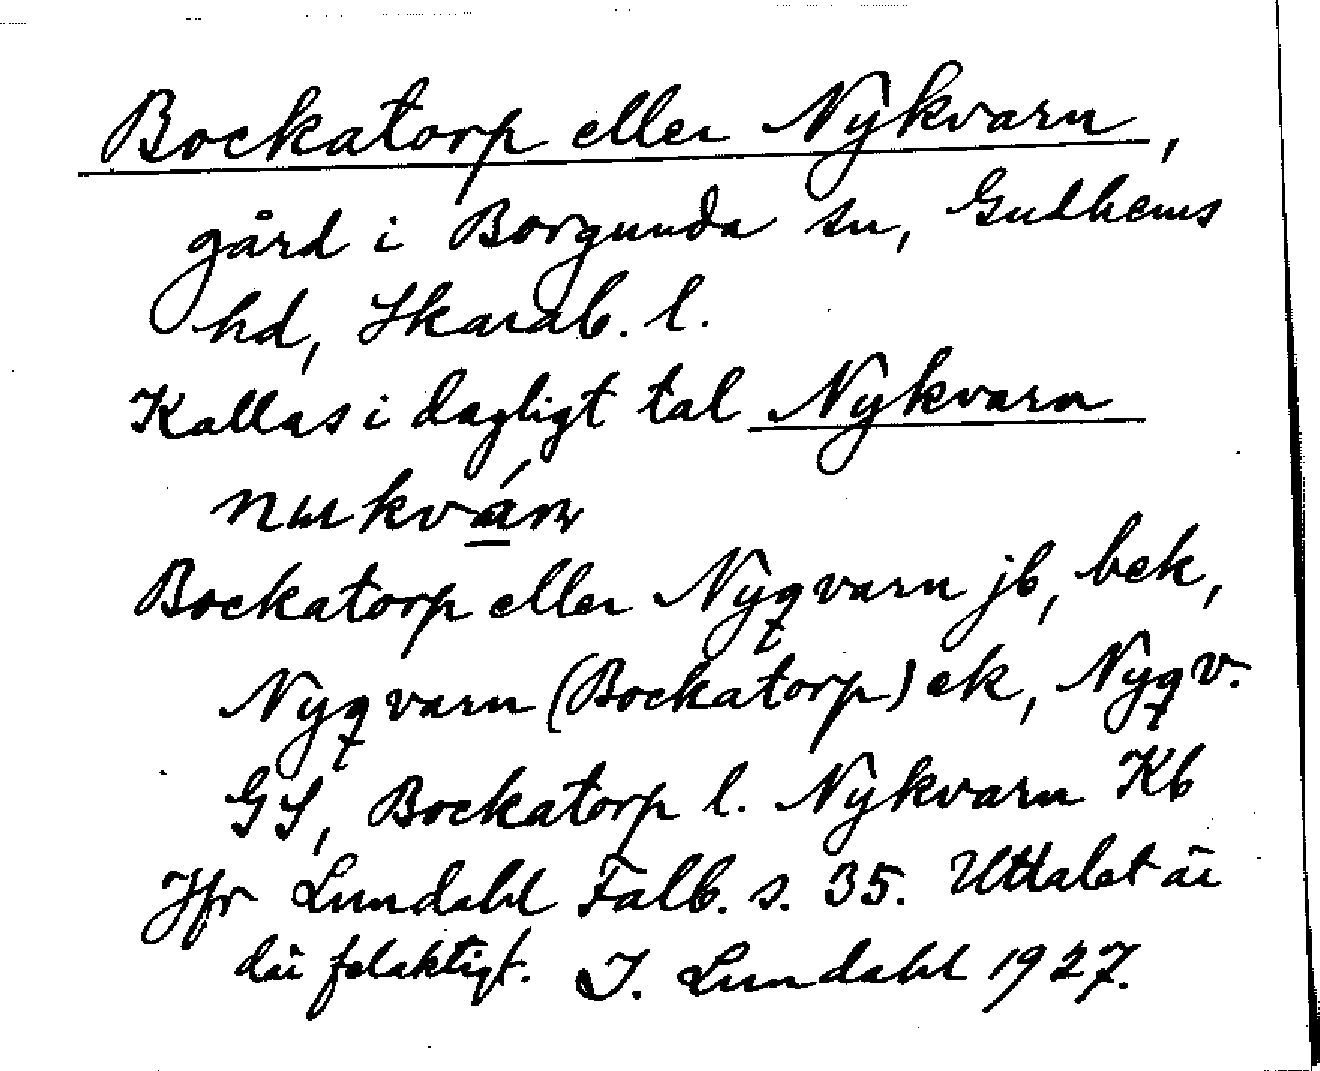 Bockatorp eller Nykvarn,
gård i Borgunda sn, Gudhems
hd, Skarab. l.
Kallas i dagligt tal Nykvarn
Bockatorp eller Nyqvarn jb, bek,
Nyqvarn (Bockatorp) ek, Nyqv.
GS, Bockatorp l. Nykvarn Kb
Jfr Lundahl Falb. s. 35. Uttalet är
där felaktigt. I. Lundahl 1927.